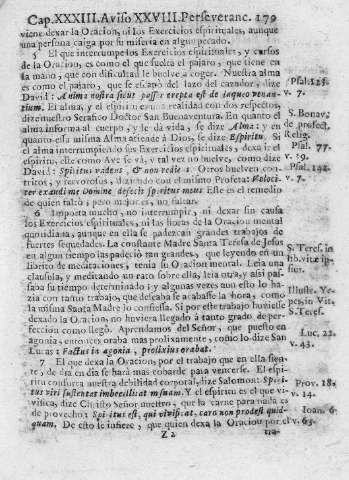 Cap.XXXIII.Aviso XXVIII.Perseveranc. 179
viene dexar la Oracion, ni los Exercicios espirituales, aunque
una persona caiga por su miseria en algun pecado.
5 El que interrumpe los Exercicios espirituales, y cursos
de la Oracion, es como el que suelta el pajaro, que tiene en
la mano, que con dificultad le buelve à coger. Nuestra alma
es como el pajaro, que se escapò del lazo del cazador, dize
David: Anima nostra sicut passer erepta est de laqueo venan-
tium. El alma, y el espiritu es una realidad con dos respectos,
dize nuestro Serafico Doctor San Buenaventura. En quanto el
alma informa al cuerpo, y le dà vida, se dize Alma; y en
quanto essa misma Alma atiende à Dios, se dize Espiritu. Si
el alma interrumpe los sus Exercicios espirituales, dexa ir el
espiritu, èlle como Ave se và, y tal vez no buelve, como dize
David: Spiritus vadens, & non rediens. Otros buelven con-
tritos, y fervorosos, diziendo con el mismo Profeta: Velociter
exaudi me Domine defecit spiritus meus. Este es el remedio
de quien faltò; pero mejor es, no faltar.
6 Importa mucho, no interrumpir, ni dexar sin causa
los Exercicios espirituales, ni las horas de la Oracion mental
quotidiana, aunque en ella se padezcan grandes trabajos de
fuertes sequedades. La constante Madre Santa Teresa de Jesus
en algun tiempo las padeciò tan grandes, que leyendo en un
librito de meditaciones, tenia su Oracion mental. Leìa una
clausula, y meditando un rato sobre ella, leìa otra, y assi pas-
saba su tiempo determinado; y algunas vezes aun esto lo ha-
zia con tanto trabajo, que deseaba se acabasse la hora, como
la misma Santa Madre lo confiessa. Si por este trabajo huviesse
dexado la Oracion, no huviera llegado à tanto grado de per-
feccion como llegò. Aprendamos del Señor, que puesto en
agonia, entonces oraba mas prolixamente, como lo dize San
Lucas: Factus in agonia, prolixius orabat.
7 El que dexa la Oracion, por el trabajo que en ella sien-
te, de dia en dia se harà mas cobarde para vencerse. El espi-
ritu confirma nuestra debilidad corporal, dize Salomon: Spiri-
tus viri sustentat imbecillitatem suam. Y el espiritu es el que vi-
vifica, dize Christo Señor nuestro, que la carne para nada es
de provecho: Spiritus est, qui vivificat, caro non prodest quid-
quam. De esto se infiere, que quien dexa la Oracion por el
Z 2
tra-
Psal. 123.
v. 7.
S. Bonav.
de profect.
Relig.
Psal. 77.
v. 39.
Psal. 142.
v. 7.
S. Teres. in
lib. vitæ ip-
sius.
Illustr. Ye-
pes, in Vit.
S. Teres.
Luc. 22.
v. 43.
Prov. 18.
v. 14.
Ioan. 6.
v. 63.